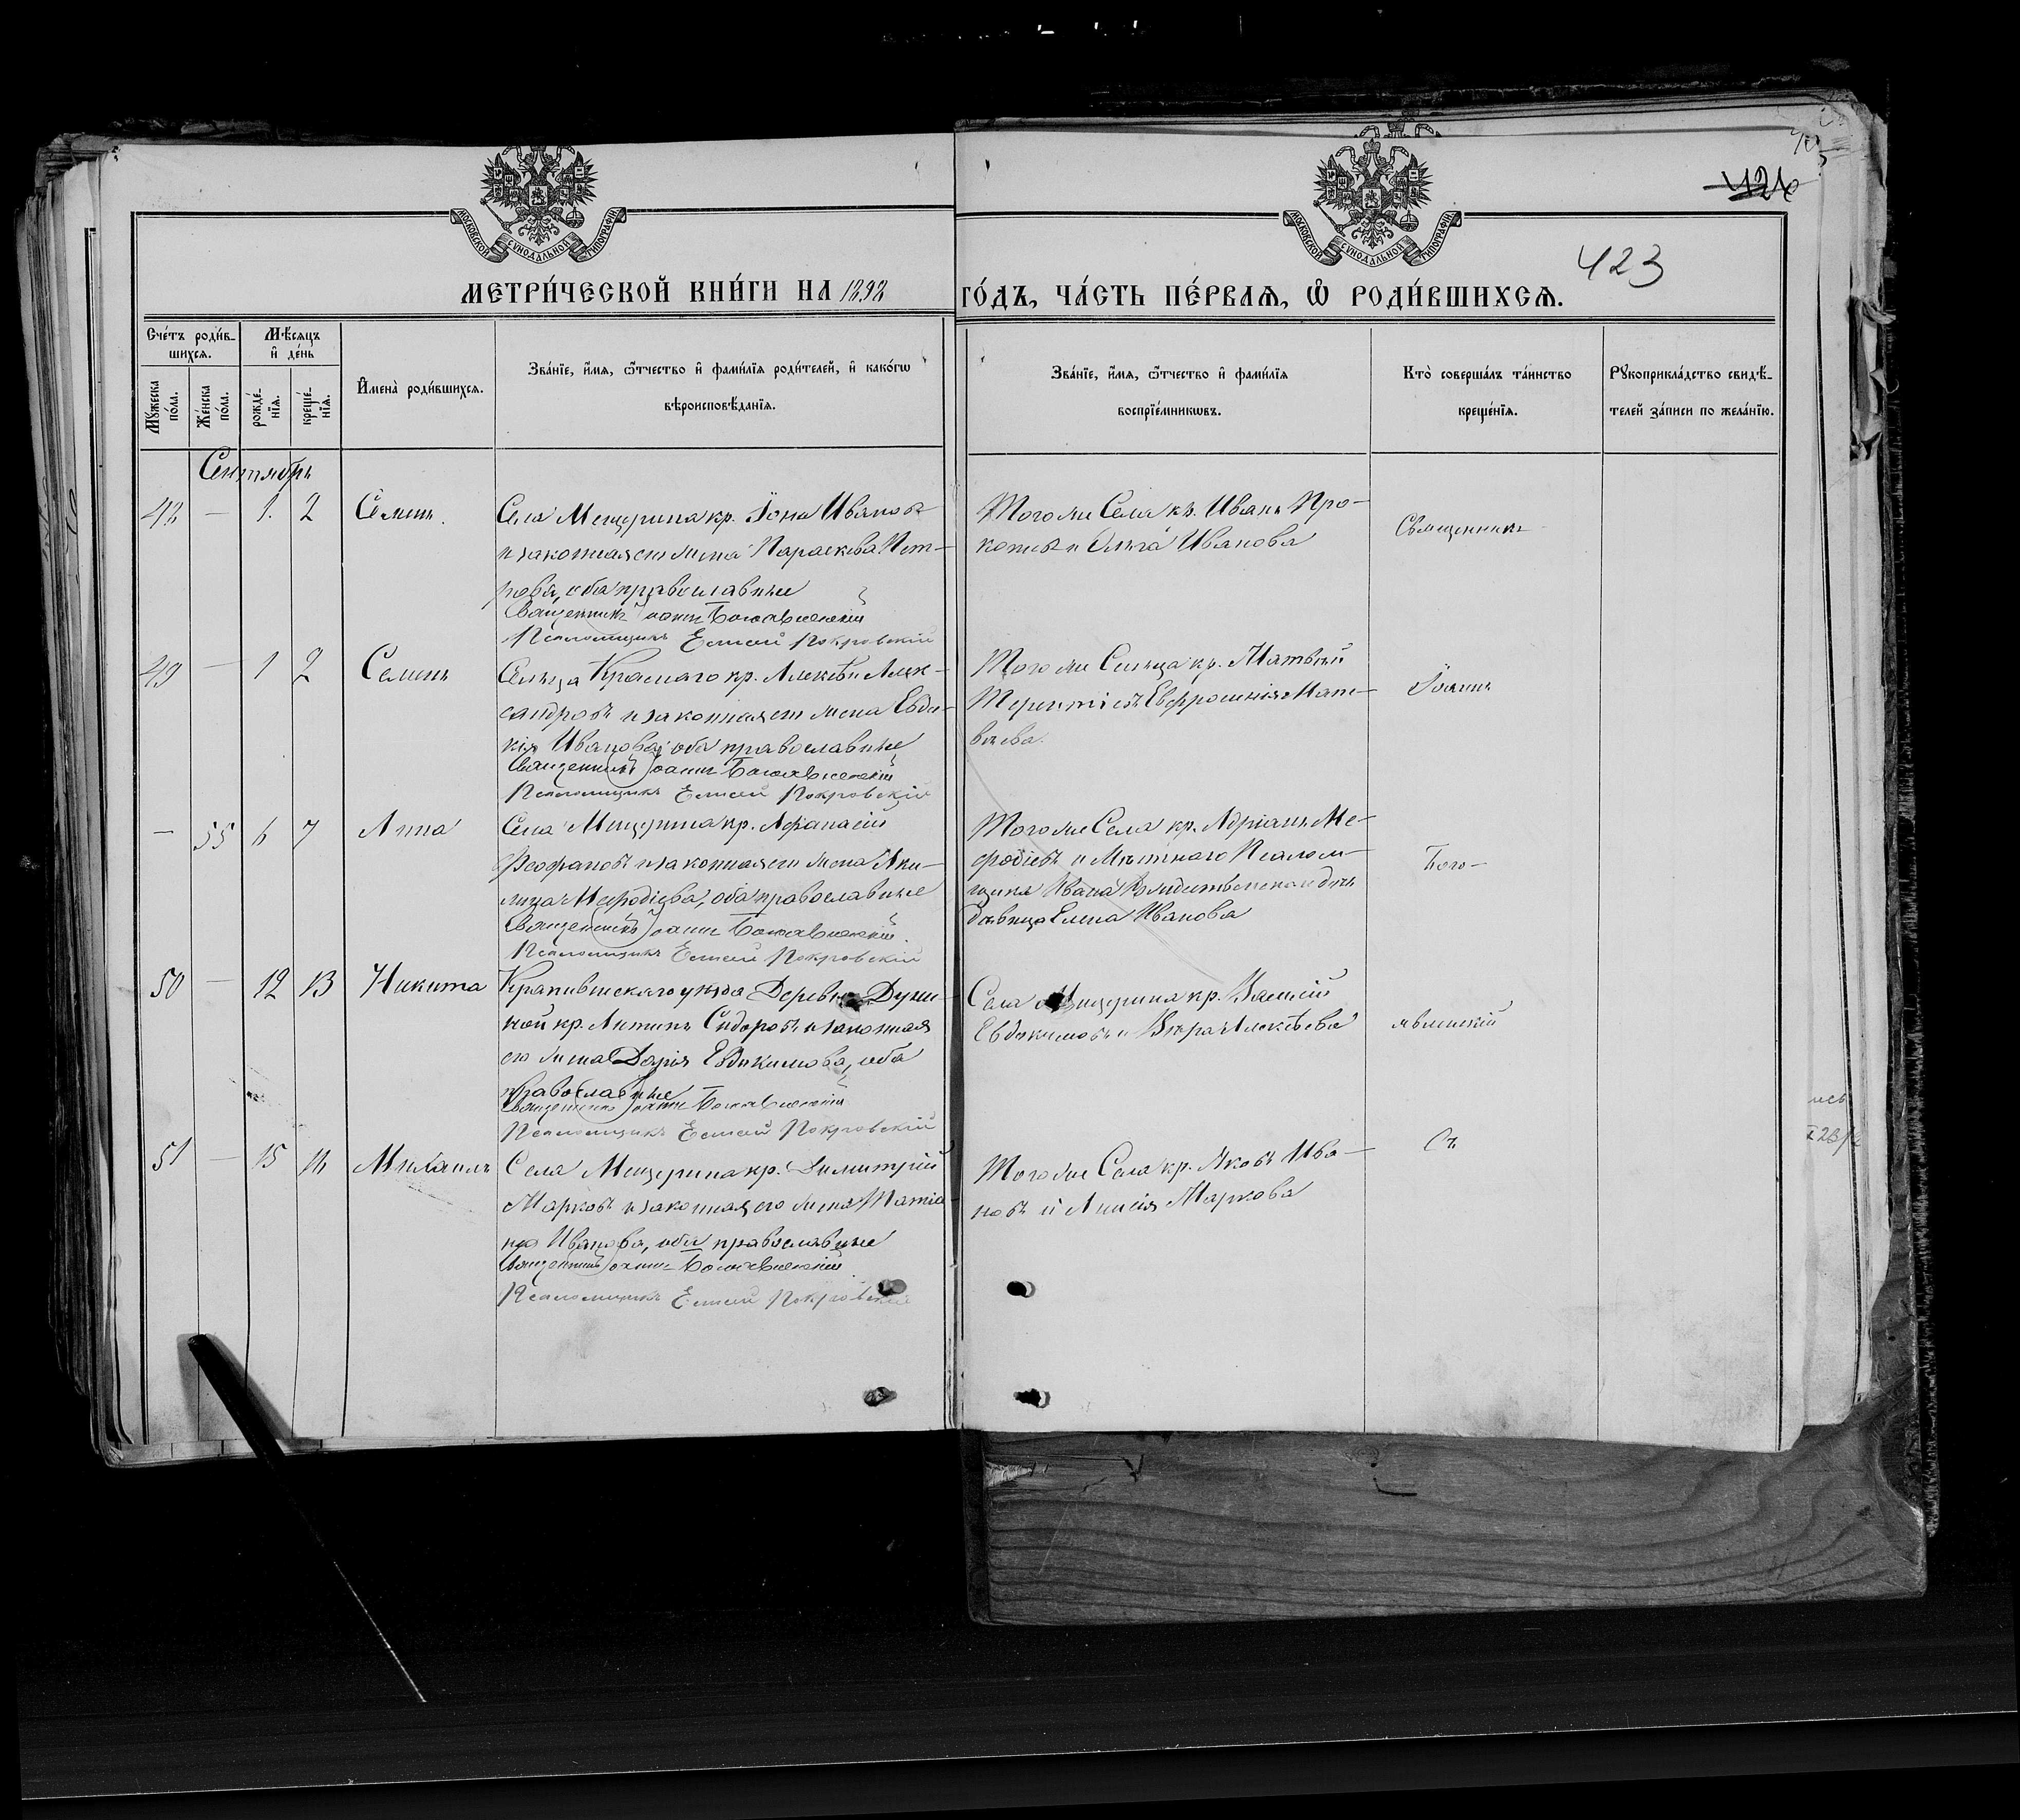 МОСКОВСКОЙ СѴНОДАЛЬНОЙ ТИПОГРАФІИ
МОСКОВСКОЙ СѴНОДАЛЬНОЙ ТИПОГРАФІИ
424
423
МЕТРИ́ЧЕСКОЙ КНИ́ГИ НА 1892 ГО́ДЪ, ЧА́СТЬ ПЕ́РВАѦ, Ѽ РОДИ́ВШИХСѦ.
Сче́тъ роди́в-
шихсѧ.
Мѣ́сѧцъ
и҆ де́нь
Мꙋ́жеска по́ла.
Же́нска по́ла.
рожде́-
нїѧ.
креще́-
нїѧ.
И҆мена̀ роди́вшихсѧ.
Зва́нїе, и҆́мѧ, ѻ҆́тчество и҆ фами́лїѧ роди́телей, и҆ како́гѡ
вѣроисповѣ́данїѧ.
Зва́нїе, и҆́мѧ, ѻ҆́тчество и҆ фами́лїѧ
воспрїе́мникѡвъ.
Кто̀ соверша́лъ та́инство
креще́нїѧ.
Рꙋкоприкла́дство свидѣ́-
телей за́писи по жела́нїю.
Сентябрь
48 — 1. 2 Семенъ.
Села Мещерина кр. Іона Ивановъ
и законная его жена Параскева Пет-
рова, оба православные
Священникъ Іоаннъ Богоявленскій
Псаломщикъ Елисей Покровскій
Того же Села кр. Иванъ Про-
копіевъ и Ольга Иванова
Священникъ
49 — 1 2 Семенъ
Сельца Краснаго кр. Алексѣй Алек-
сандровъ и законная его жена Евдо-
кія Иванова, оба православные
Священникъ Іоаннъ Богоявленскій
Псаломщикъ Елисей Покровскій
Того же Сельца кр. Матвѣй
Терентіевъ Евфросинія Мат-
вѣева.
Іоаннъ
— 55 6 7 Анна
Села Мещерина кр. Афанасій
Феофановъ и законная его жена Аки-
лина Мефодіева, оба православные
Священникъ Іоаннъ Богоявленскій
Псаломщикъ Елисей Покровскій
Того же Села кр. Адріанъ Ме-
фодіевъ и Мѣстнаго Псалом-
щика Ивана Рождественскаго дочь
дѣвица Елена Иванова
Бого-
50 — 12 13 Никита
Крапивенскаго уѣзда Деревни
кр. Антипъ Сидоровъ и законная
его жена Дарія Евдокимова, оба
православные
Священникъ Іоаннъ Богоявленскій
Псаломщикъ Елисей Покровскій
Села Мещерина кр. Василій
Евдокимовъ и Вѣра Алексѣева
явленскій
51 — 15 Михаилъ
Села Мещерина кр. Димитрій
Марковъ и законная его жена Татіа-
на Иванова, оба православные
Священникъ Іоаннъ Богоявленскій
Псаломщикъ Елисей Покровскій
Того же Села кр. Яковъ Ива-
новъ и Анисія Маркова
Съ